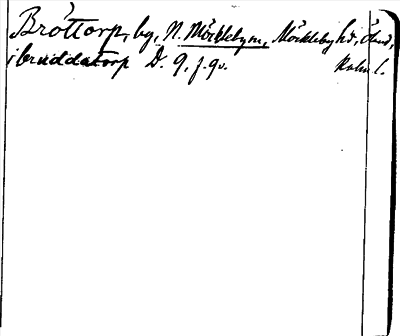 Bröttorp, by, N. Möckleby sn, Möckleby hd, Öland,
i bruddatorp D. 9. f. 9v. Kalm l.